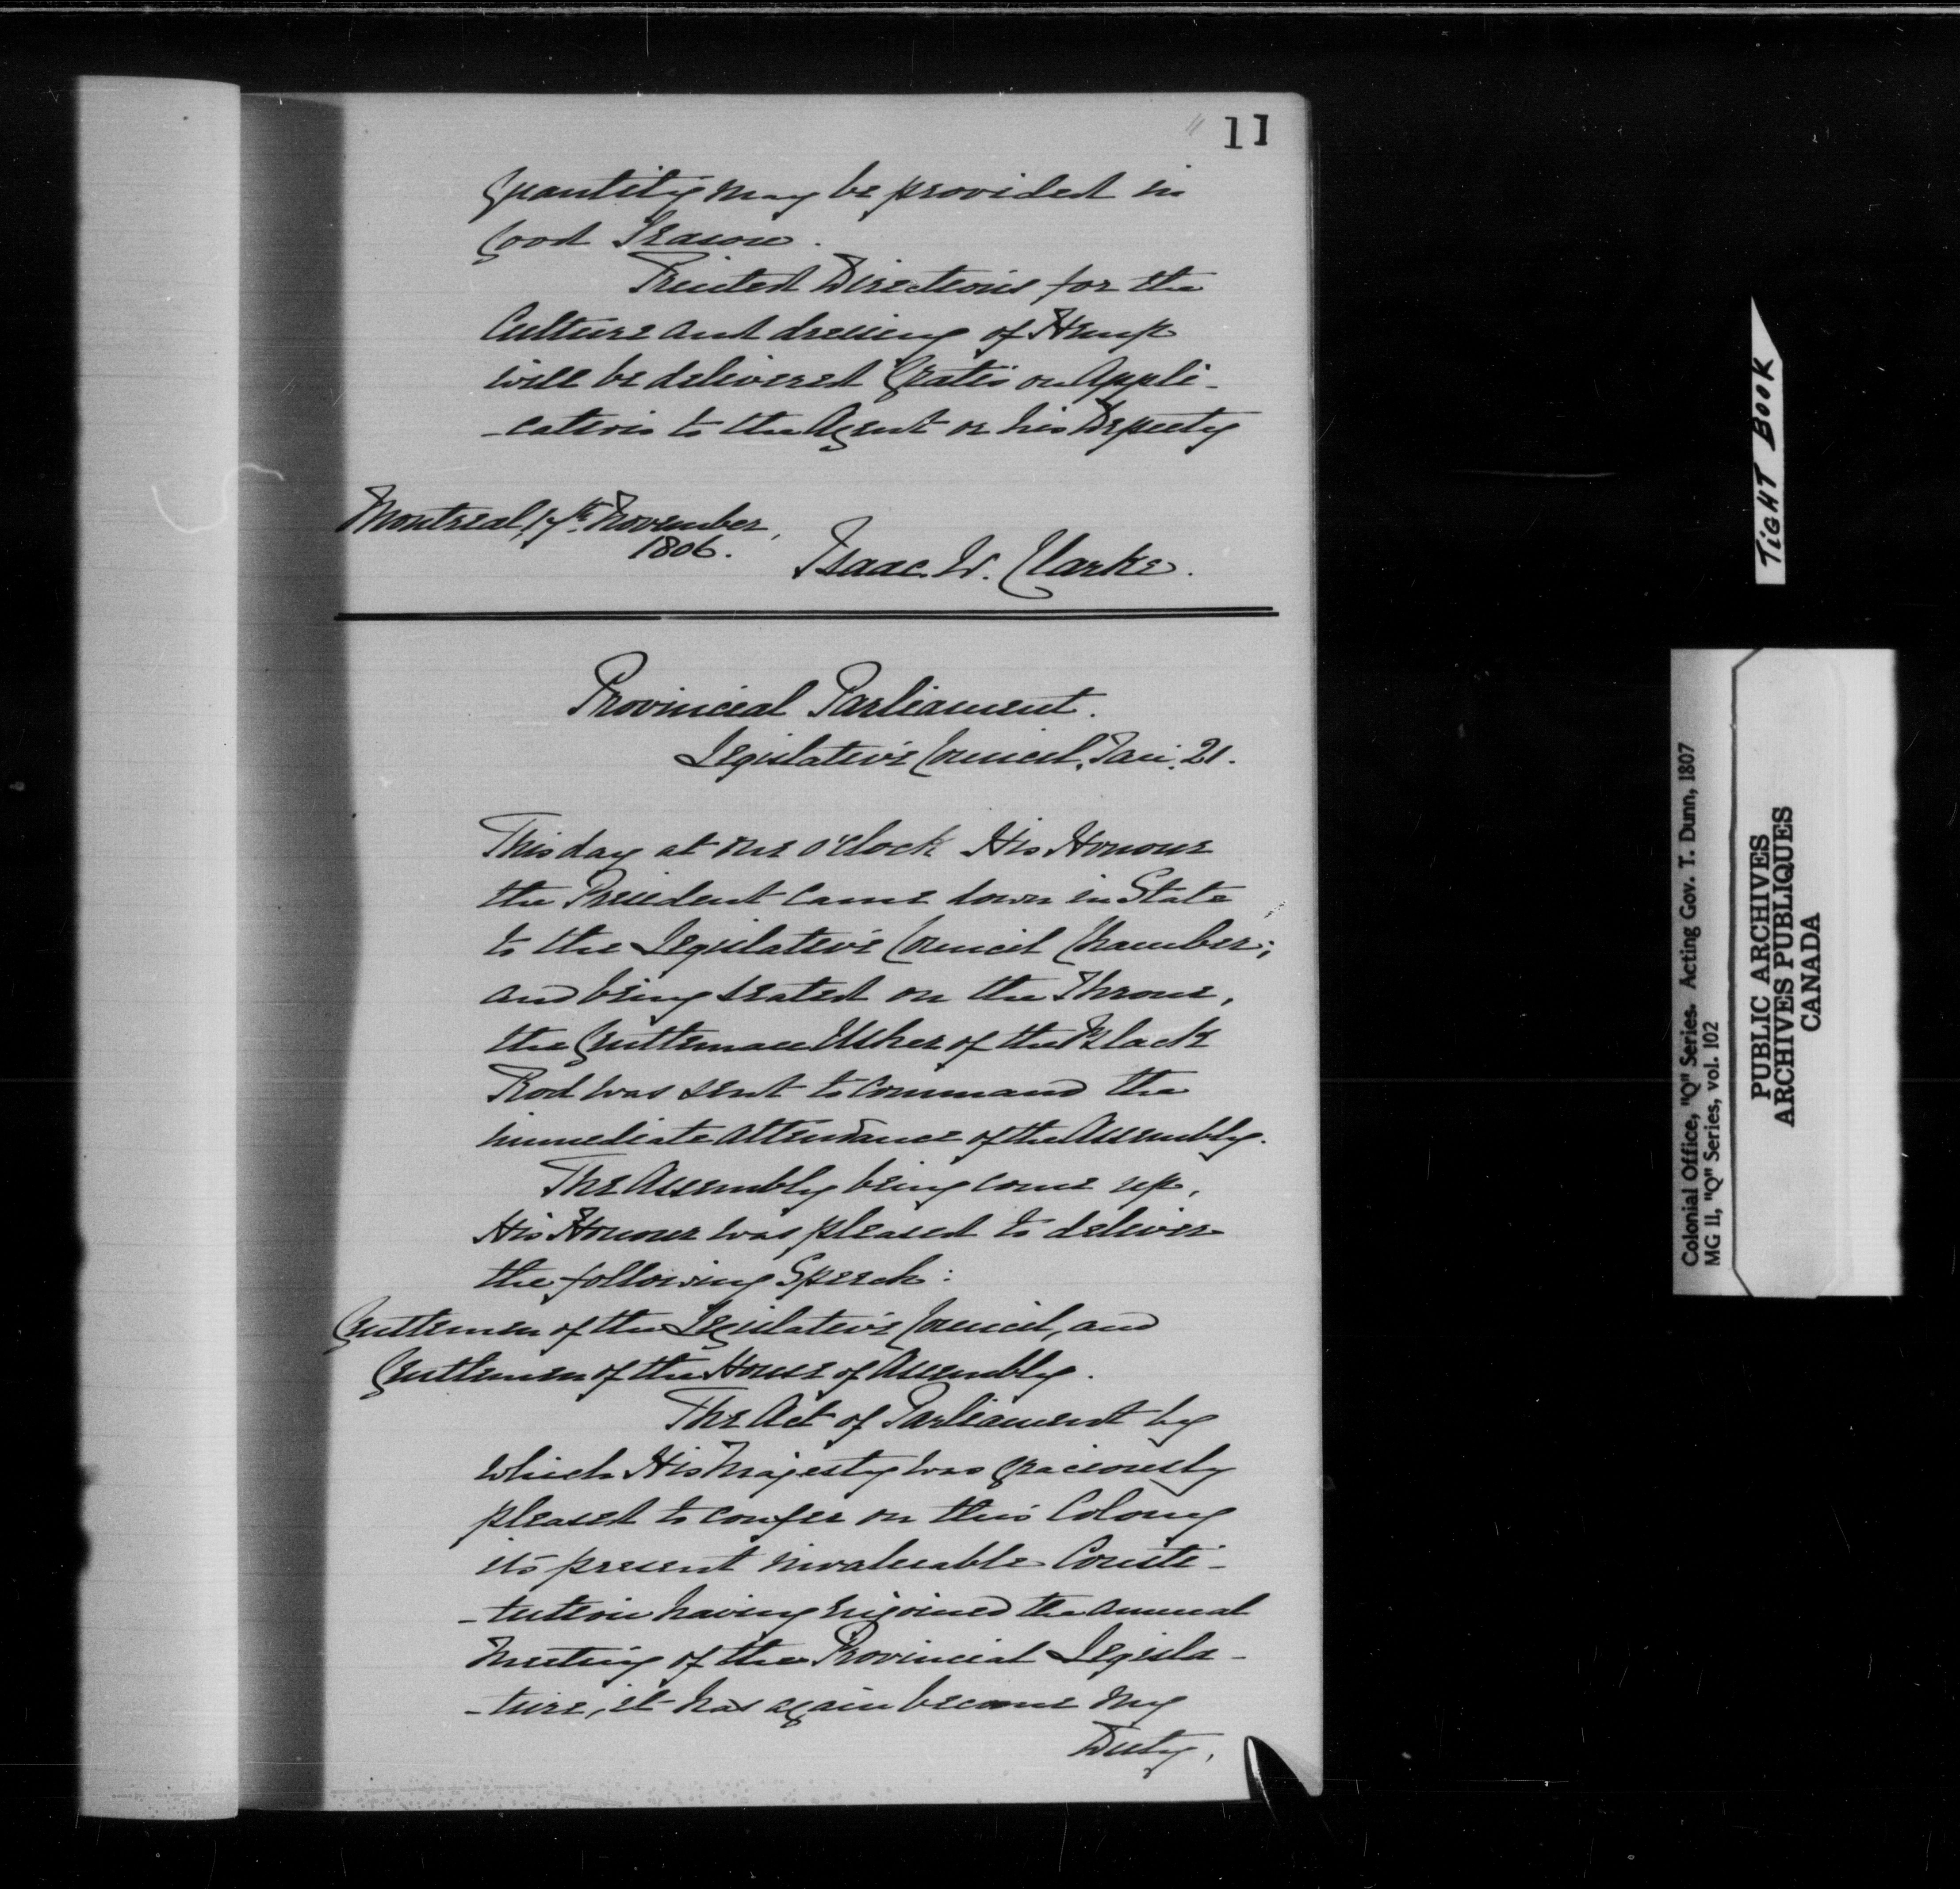 11
Quantity may be provided in
Good Season.
Printed Directions for the
Culture and dressing of Hemp
will be delivered Gratis on Appli-
-cation to the Agent or his Deputy
Montreal, 17th November,
1806.
Isaac W. Clarke.
Provincial Parliament.
Legislative Council, Jan. 21.
This day at one o'clock His Honour
the President came down in State
to the Legislative Council Chamber;
and being seated on the Throne,
the Gentleman Usher of the Black
Rod was sent to command the
immediate attendance of the Assembly.
The Assembly being come up,
His Honour was pleased to deliver
the following Speech:
Gentlemen of the Legislative Council, and
Gentlemen of the House of Assembly.
The Act of Parliament by
which His Majesty was graciously
pleased to confer on this Colony
its present invaluable Consti-
-tution having enjoined the annual
Meeting of the Provincial Legisla-
-ture, it has again become my
Duty,
TIGHT BOOK
Colonial Office, "Q" Series. Acting Gov. T. Dunn, 1807
MG 11, "Q" Series, vol. 102
PUBLIC ARCHIVES
ARCHIVES PUBLIQUES
CANADA